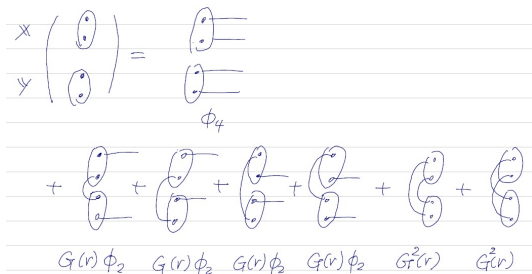 X
Y
=
ϕ₄
+ + + + + +
G(r) ϕ₂ G(r) ϕ₂ G(r) ϕ₂ G(r) ϕ₂ G²(r) G²(r)